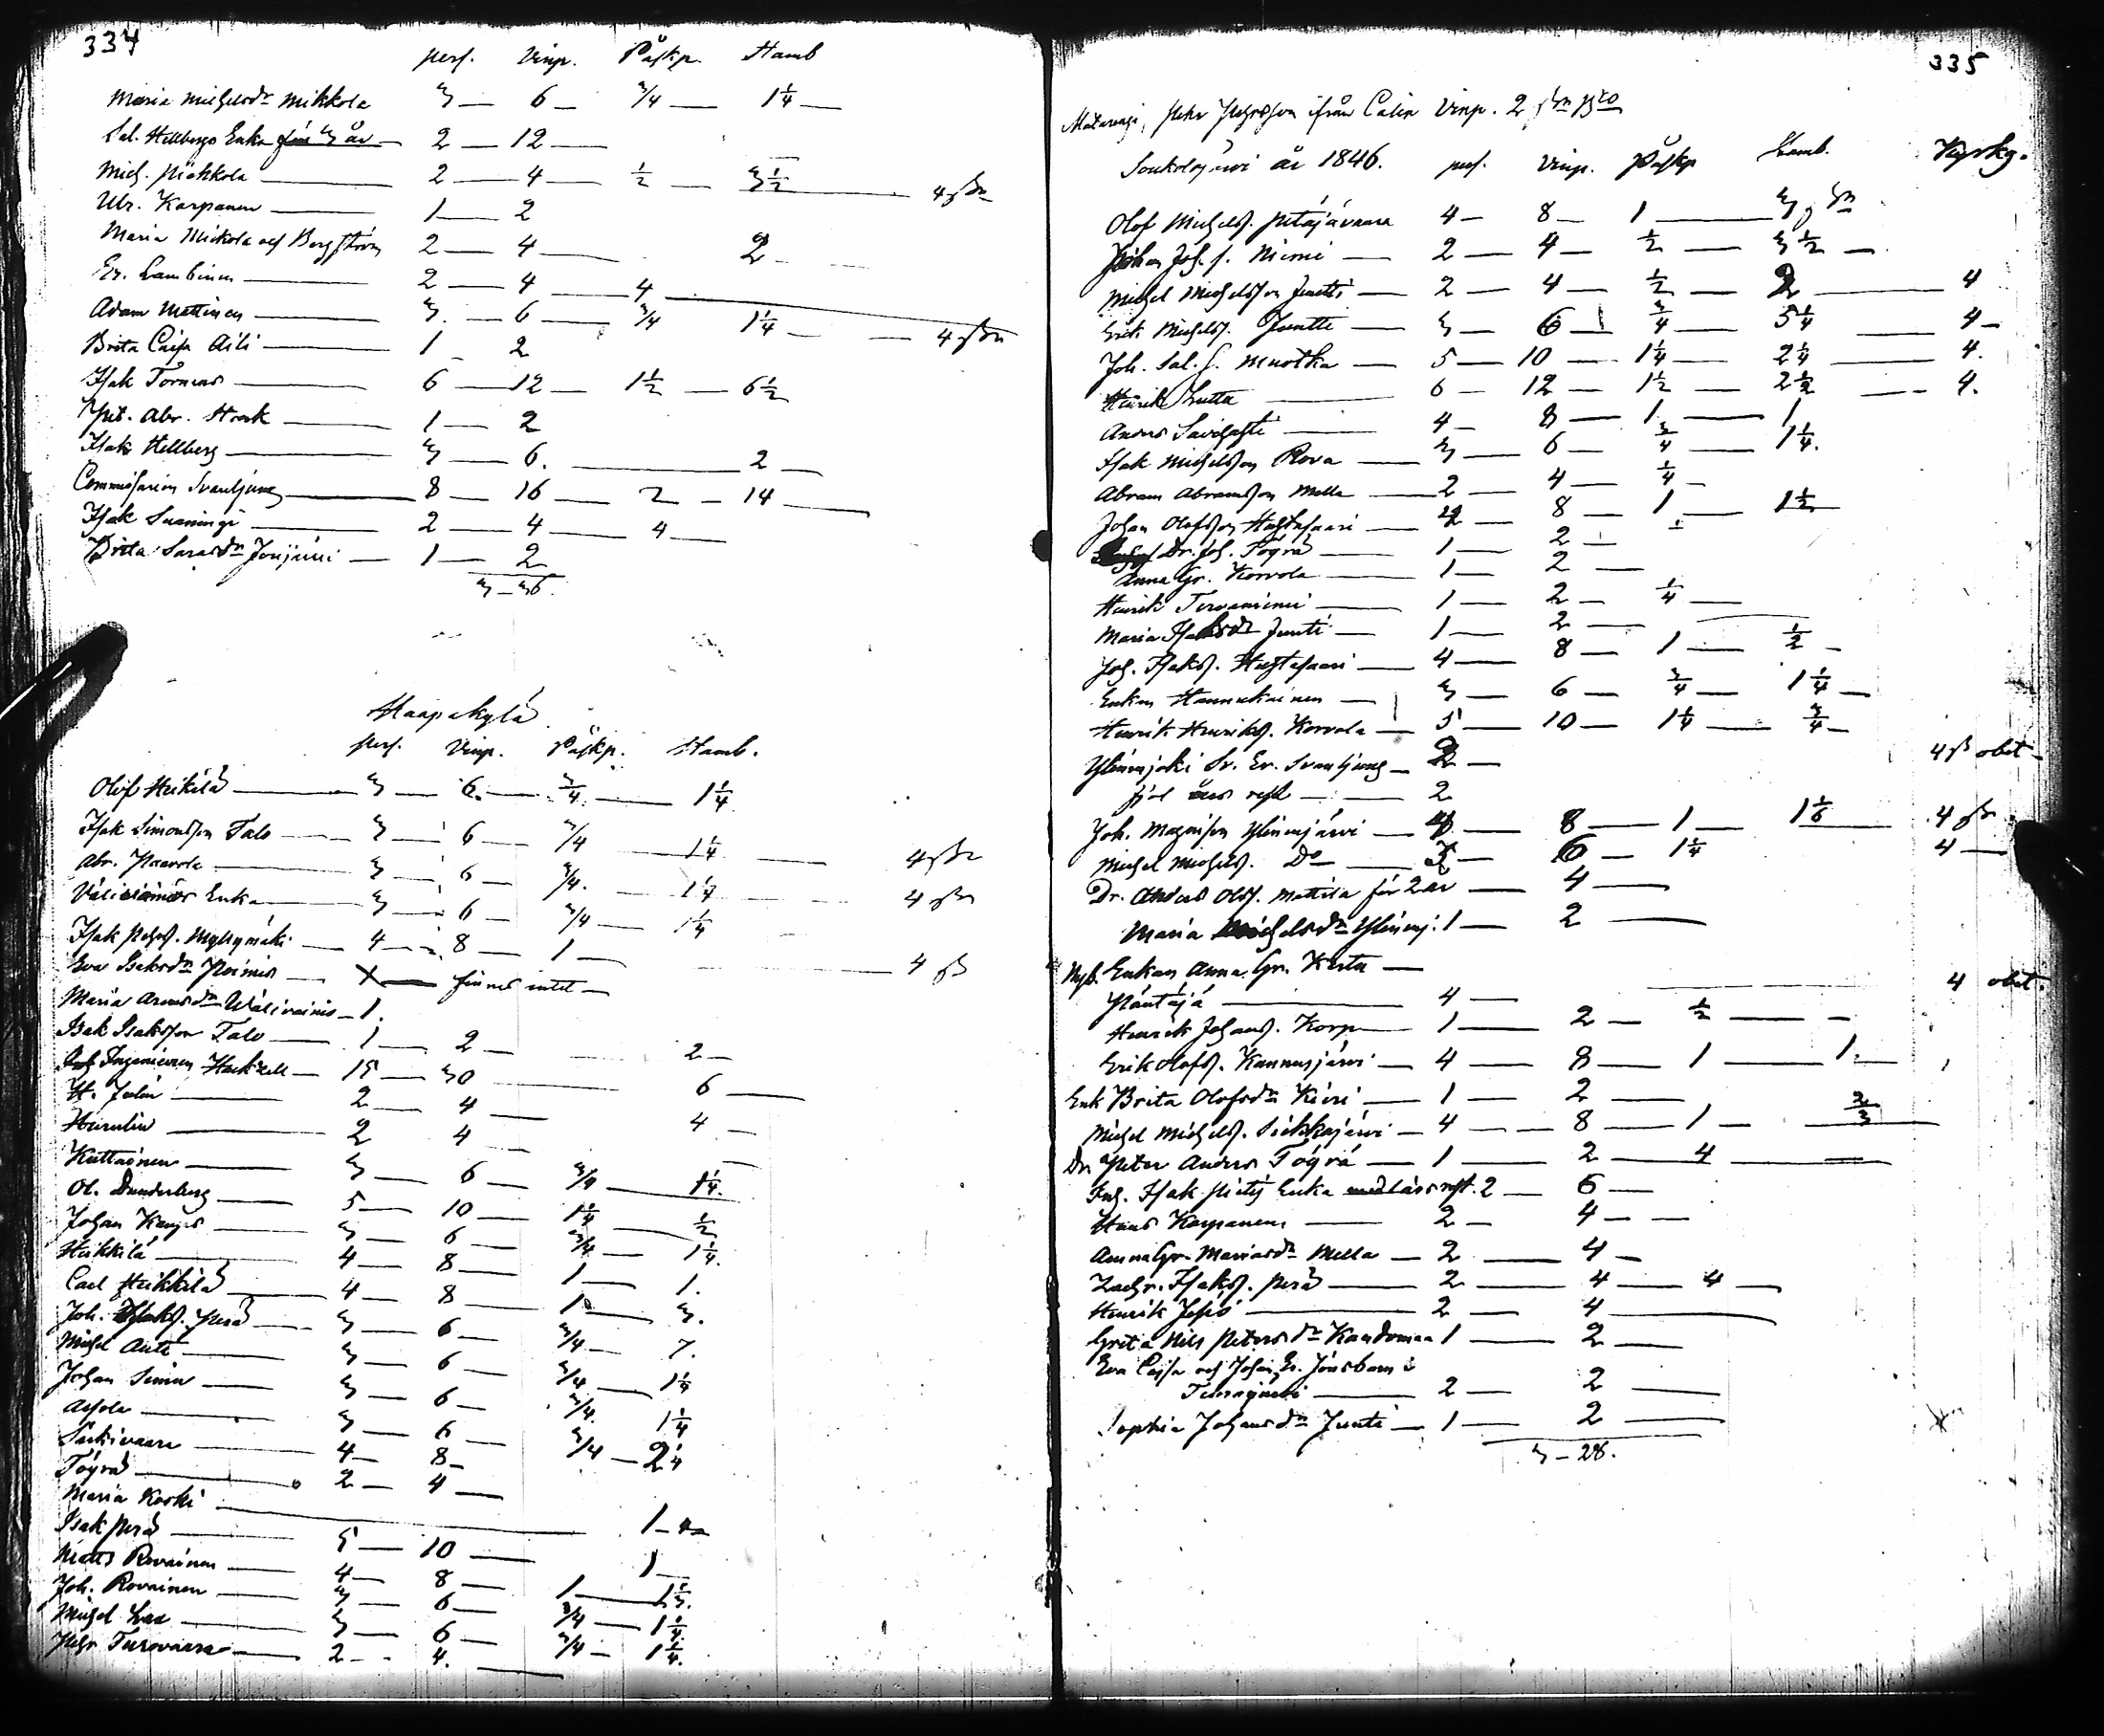 334
pers. Vinp. Påskp. Hamb
Maria Michelsdr Mikkola 3 — 6 — 3/4 — 1 1/4 —
Sal. Hellbergs Enka för 3 år — 2 — 12 —
Mich. Mikkola — 2 — 4 — 1/2 — 3 1/2 — 4 sk
Ulr. Karpanen — 1 — 2
Maria Mickola och Bergström 2 — 4 — 2
Er. Lambinen — 2 — 4 — 4
Adam Mattinen — 3 — 6 — 3/4 1 1/4 — 4 sk
Brita Caisa Aili — 1 — 2
Isak Tornens — 6 — 12 — 1 1/2 — 6 1/2
Pet. Abr. Stark — 1 — 2
Isak Hellberg — 3 — 6. — 2 —
Commissarien Svanljung — 8 — 16 — 2 — 14 —
Isak Suaningi — 2 — 4 — 4 —
Brita Sarasdr Joujärvi — 1 — 2
3 — 36.
Haapakylä
pers. Vinp. Påskp. Hamb.
Olof Heikilä — 3 — 6. — 3/4 — 1 1/4
Isak Simonsson Talo — 3 — 6 — 3/4 1 1/4 — 4 sk
Abr. Paavola — 3 — 6 — 3/4. — 1 1/4 — 4 sk
Enka — 3 — 6 — 3/4 — 1 1/4
Isak Pehrs. Myllymäki — 4 — 8 — 1 — 4 sk
Eva Isaksdr — X — finnes intet —
Maria — 1.
Isak Isaksson Talo — 1 — 2 — 2 —
Ingenieuren Hackzell — 15 — 30 — 6 —
H. Julin — 2 — 4 — 4 —
Heinulin — 2 — 4 —
Kuttainen — 3 — 6 — 3/4 — 1 1/4.
Ol. Dunderberg — 5 — 10 — 1 1/4 — 1/2
Johan Kangas — 3 — 6 — 3/4 — 1 1/4.
Heikkilä — 4 — 8 — 1 — 1.
Carl Heikkilä — 4 — 8 — 1 — 3.
Joh. Isaks. Perä — 3 — 6 — 3/4 — 7.
Michel Anti — 3 — 6 — 3/4 — 1 1/4
Johan Simu — 3 — 6 — 3/4. 1 1/4
Asola — 3 — 6 — 3/4 — 2 1/4
Särkivaara — 4 — 8 —
Töyrä — 2 — 4 —
Maria Koski — 1 —
Isak Perä — 5 — 10 — 1 —
Matts Rovainen — 4 — 8 — 1 — 1 1/3.
Joh. Rovainen — 3 — 6 — 3/4 — 1 1/4.
Michel Lax — 3 — 6 — 3/4 — 1 1/4.
Pehr Turovaara — 2 — 4. —
335
Matarengi, Pehr Pehrsson ifrån Calix Vinp. 2
Soukolojärvi år 1846. pers. Vinp. Påskp Lamb. Kyrkg.
Olof Michels. Petäjävaara 4 — 8 — 1 — 3 sk
Johan Joh. s. Niemi — 2 — 4 — 1/2 — 3 1/2 —
Michel Michelsson Juntti — 2 — 4 — 1/2 — 2 — 4
Erik Michels. Juntti — 3 — 6 — 3/4 — 5 1/4 — 4 —
Joh. Sal. s. Muotka — 5 — 10 — 1 1/4 — 2 1/4 — 4.
Henrik Lutta — 6 — 12 — 1 1/2 — 2 1/2 — 4.
Anders Savilahti — 4 — 8 — 1 — 1
Isak Michelsson Rova — 3 — 6 3/4 — 1 1/4.
Abram Abramsson Mella — 2 — 4 — 1/4 —
Johan Olofsson Hastasaari — 4 — 8 — 1 — 1 1/2
Dr. Joh. Töyrä — 1 — 2 —
Anna Gr. Korvola — 1 — 2 —
Henrik Tervaniemi — 1 — 2 — 1/4 —
Maria Isaksdr Junti — 1 — 2 —
Joh. Isaks. Hastasaari — 4 — 8 — 1 — 1/2 —
Enkan Hannukainen — 3 — 6 — 3/4 — 1 1/4 —
Henrik Henriks. Korvola — 5 — 10 — 1 1/4 — 3/4 —
Ylinenjoki Sr. Er. Svanljung — 2 — 4 sk obet —
fjol års rest — 2
Joh. Magnison Ylinenjärvi — 4 — 8 — 1 — 1 1/6 4 sk
Michel Michels. Do — 3 — 6 — 1 1/4 4 —
Dr. Anders Olofs. Mattila för 2 år — 4 —
Maria Michelsdr Ylinenj. 1 — 2 —
Nyb. Enkan Anna Gr. Kertu —
Päntäjä — 4 — 4 obet.
Henrik Johans. Korpi — 1 — 2 — 1/2 — —
Erik Olofs. Kannusjärvi — 4 — 8 — 1 — 1. —
Enk Brita Olofsdr Kieri — 1 — 2 —
Michel Michels. Siekkajärvi — 4 — 8 — 1 — 2/3
Dr Peter Anders Töyrä — 1 — 2 — 4 —
Inh. Isak Pietis Enka med lårs rest. 2 — 6 —
Hans Karpanen — 2 — 4 — —
Anna Gr. Mariasdr Mella — 2 — 4 —
Zachr. Isaks. Perä — 2 — 4 — 4 —
Henrik Jossio — 2 — 4 —
Greta Nils Petersdr Kandomaa 1 — 2 —
Eva Cajsa och Johan Er. Jönsbarn i
— 2 — 2 —
Sophia Johansdr Junti — 1 — 2 —
3 — 28.